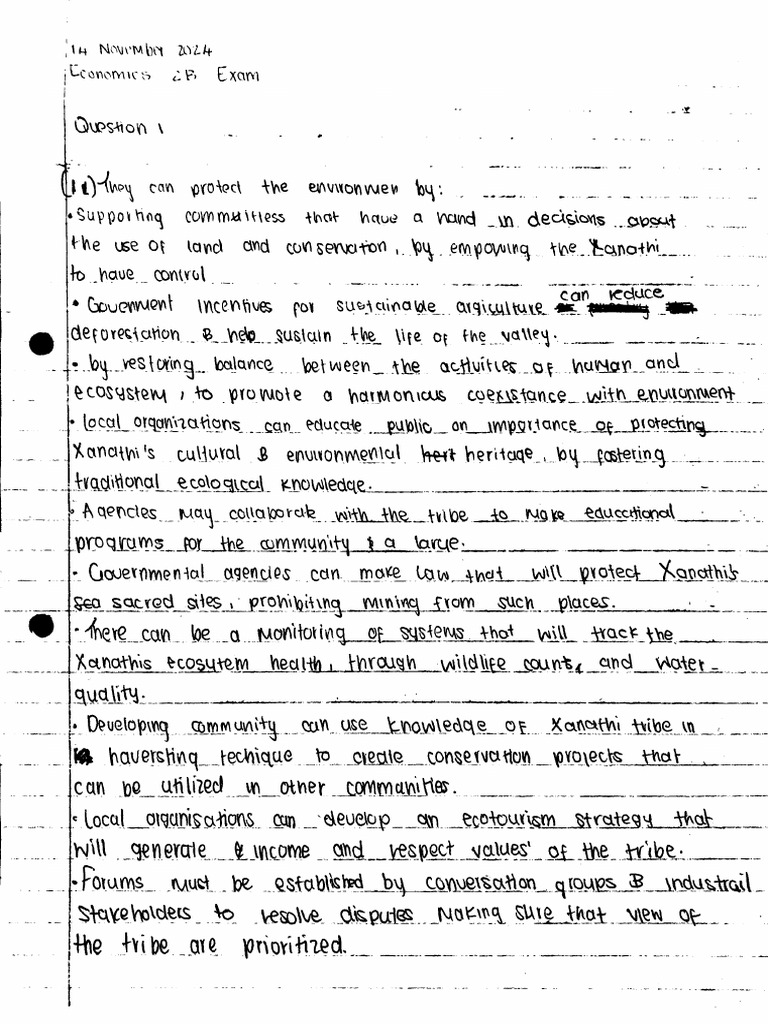 14 November 2024
Economics 2B Exam
Question 1
(1.1) They can protect the environmen by:
• Supporting commuitless that have a hand in decisions about
the use of land and conservation, by empowing the Xanathi
to have control
• Government incentives for sustainable argiculture can reduce
deforestation & help sustain the life of the valley.
• by restoring balance between the activities of human and
ecosystem, to promote a harmonious coexistance with environment
• local organizations can educate public on importance of protecting
Xanathi's cultural & environmental heritage, by fostering
traditional ecological knowledge.
• Agencies may collaborate with the tribe to make educational
programs for the community & a large.
• Governmental agencies can make law that will protect Xanathi's
sacred sites, prohibiting mining from such places.
• There can be a monitoring of systems that will track the
Xanathis ecosytem health, through wildlife counts, and water
quality.
• Developing community can use knowledge of Xanathi tribe in
haversting techique to create conservation projects that
can be utilized in other communities.
• Local organisations can develop an ecotourism strategy that
will generate & income and respect values' of the tribe.
• Forums must be established by conversation groups & industrail
stakeholders to resolve disputes making sure that view of
the tribe are prioritized.